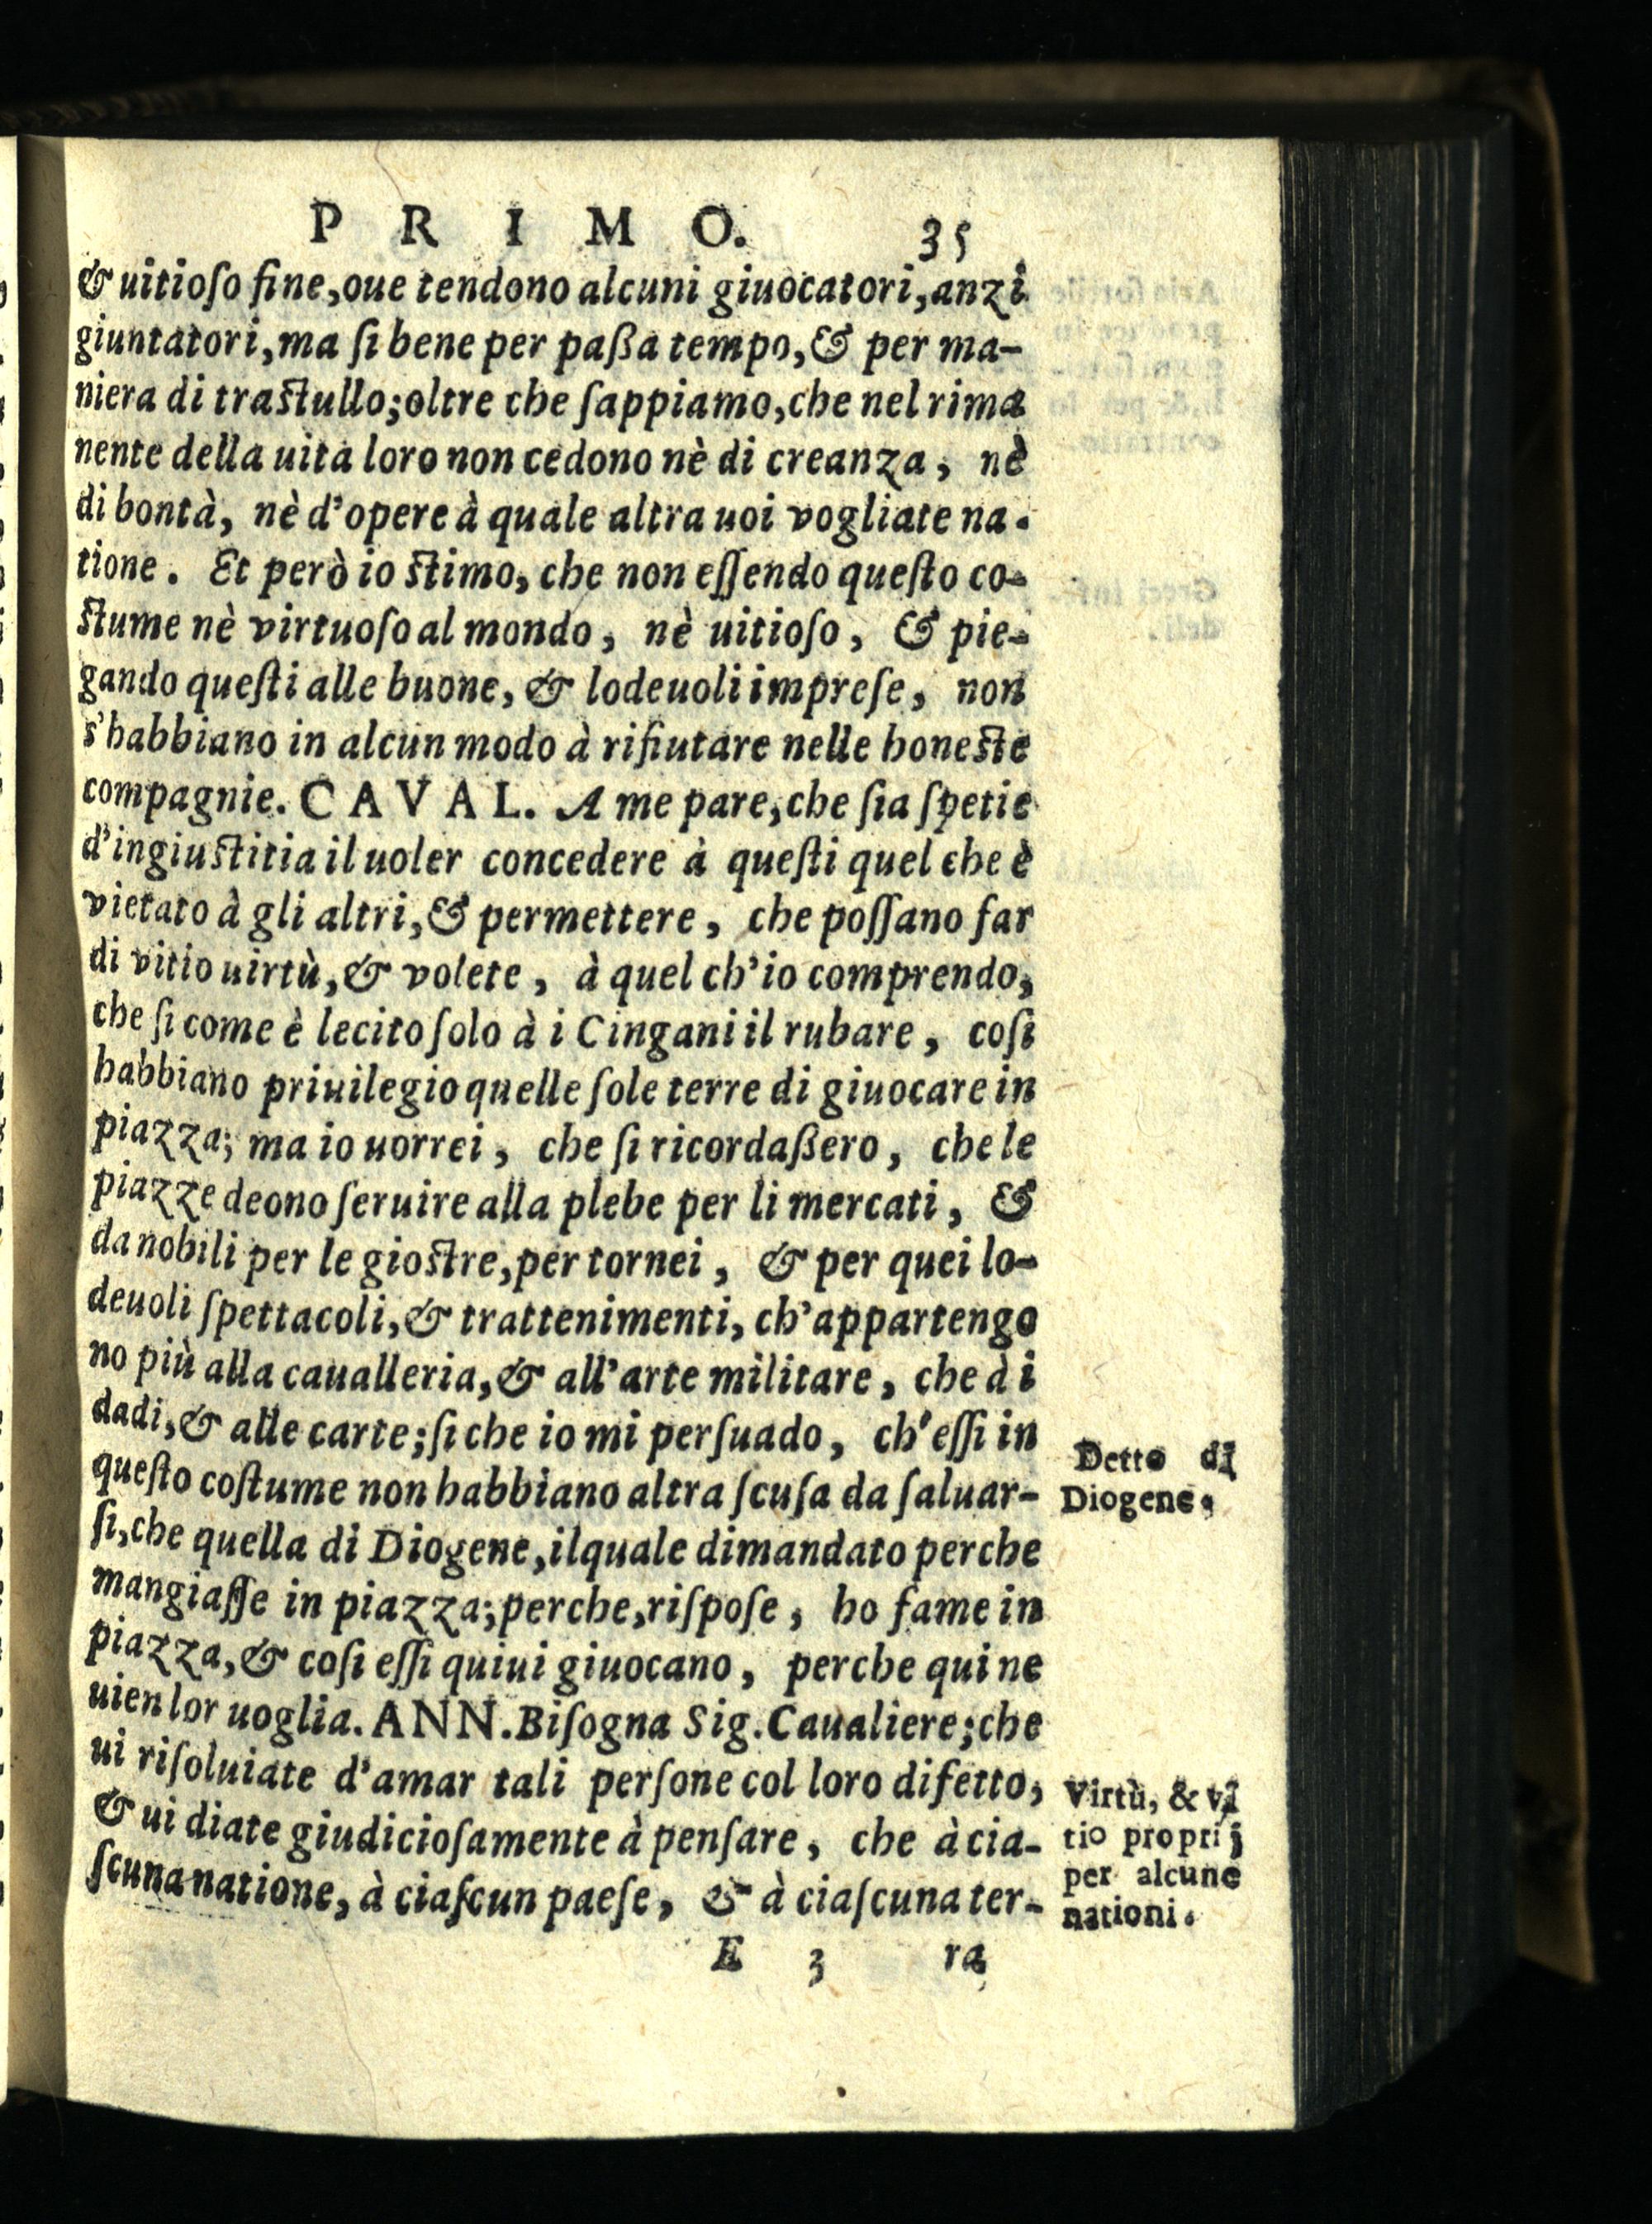 PRIMO. 35
& uitioſo fine, oue tendono alcuni giuocatori, anzi
giuntatori, ma ſi bene per paßa tempo, & per ma-
niera di traſtullo; oltre che ſappiamo, che nel rima
nente della uita loro non cedono nè di creanza, nè
di bontà, nè d'opere à quale altra uoi vogliate na-
tione. Et però io ſtimo, che non eſſendo queſto co-
ſtume nè virtuoſo al mondo, nè uitioſo, & pie-
gando queſti alle buone, & lodeuoli impreſe, non
s'habbiano in alcun modo à rifiutare nelle honeſte
compagnie. CAVAL. A me pare, che ſia ſpetie
d'ingiuſtitia il uoler concedere à queſti quel che è
vietato à gli altri, & permettere, che poſſano far
di vitio uirtù, & volete, à quel ch'io comprendo,
che ſi come è lecito ſolo à i Cingani il rubare, coſi
habbiano priuilegio quelle ſole terre di giuocare in
piazza; ma io uorrei, che ſi ricordaßero, che le
piazze deono ſeruire alla plebe per li mercati, &
da nobili per le gioſtre, per tornei, & per quei lo-
deuoli ſpettacoli, & trattenimenti, ch'appartengo
no più alla caualleria, & all'arte militare, che à i
dadi, & alle carte; ſi che io mi perſuado, ch'eſſi in
queſto coſtume non habbiano altra ſcuſa da ſaluar-
ſi, che quella di Diogene, ilquale dimandato perche
mangiaſſe in piazza; perche, riſpoſe, ho fame in
piazza, & coſi eſſi quiui giuocano, perche qui ne
uien lor uoglia. ANN. Biſogna Sig. Caualiere; che
ui riſoluiate d'amar tali perſone col loro difetto,
& ui diate giudicioſamente à penſare, che à cia-
ſcuna natione, à ciaſcun paeſe, & à ciaſcuna ter-
E 3 ra
Detto di
Diogene.
Virtù, & vi
tio proprij
per alcune
nationi.